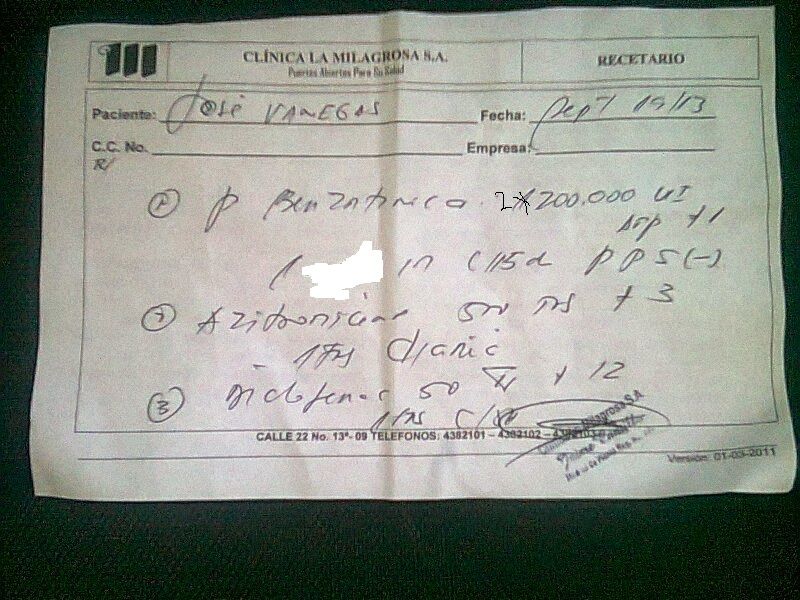 CLÍNICA LA MILAGROSA S.A.
Puertas Abiertas Para Su Salud
RECETARIO
Paciente: José VANEGAS Fecha: Sept 19/13
C.C. No. Empresa:
R/
① P Benzatinica. 2X200.000 UI
Amp #1
1 in C/15d PPS(-)
② Azitromicina 500 # 3
diaria
③ Diclofenac 50 # 12
CALLE 22 No. 13ª- 09 TELEFONOS: 4382101 – 4382102 –
Versión: 01-03-2011